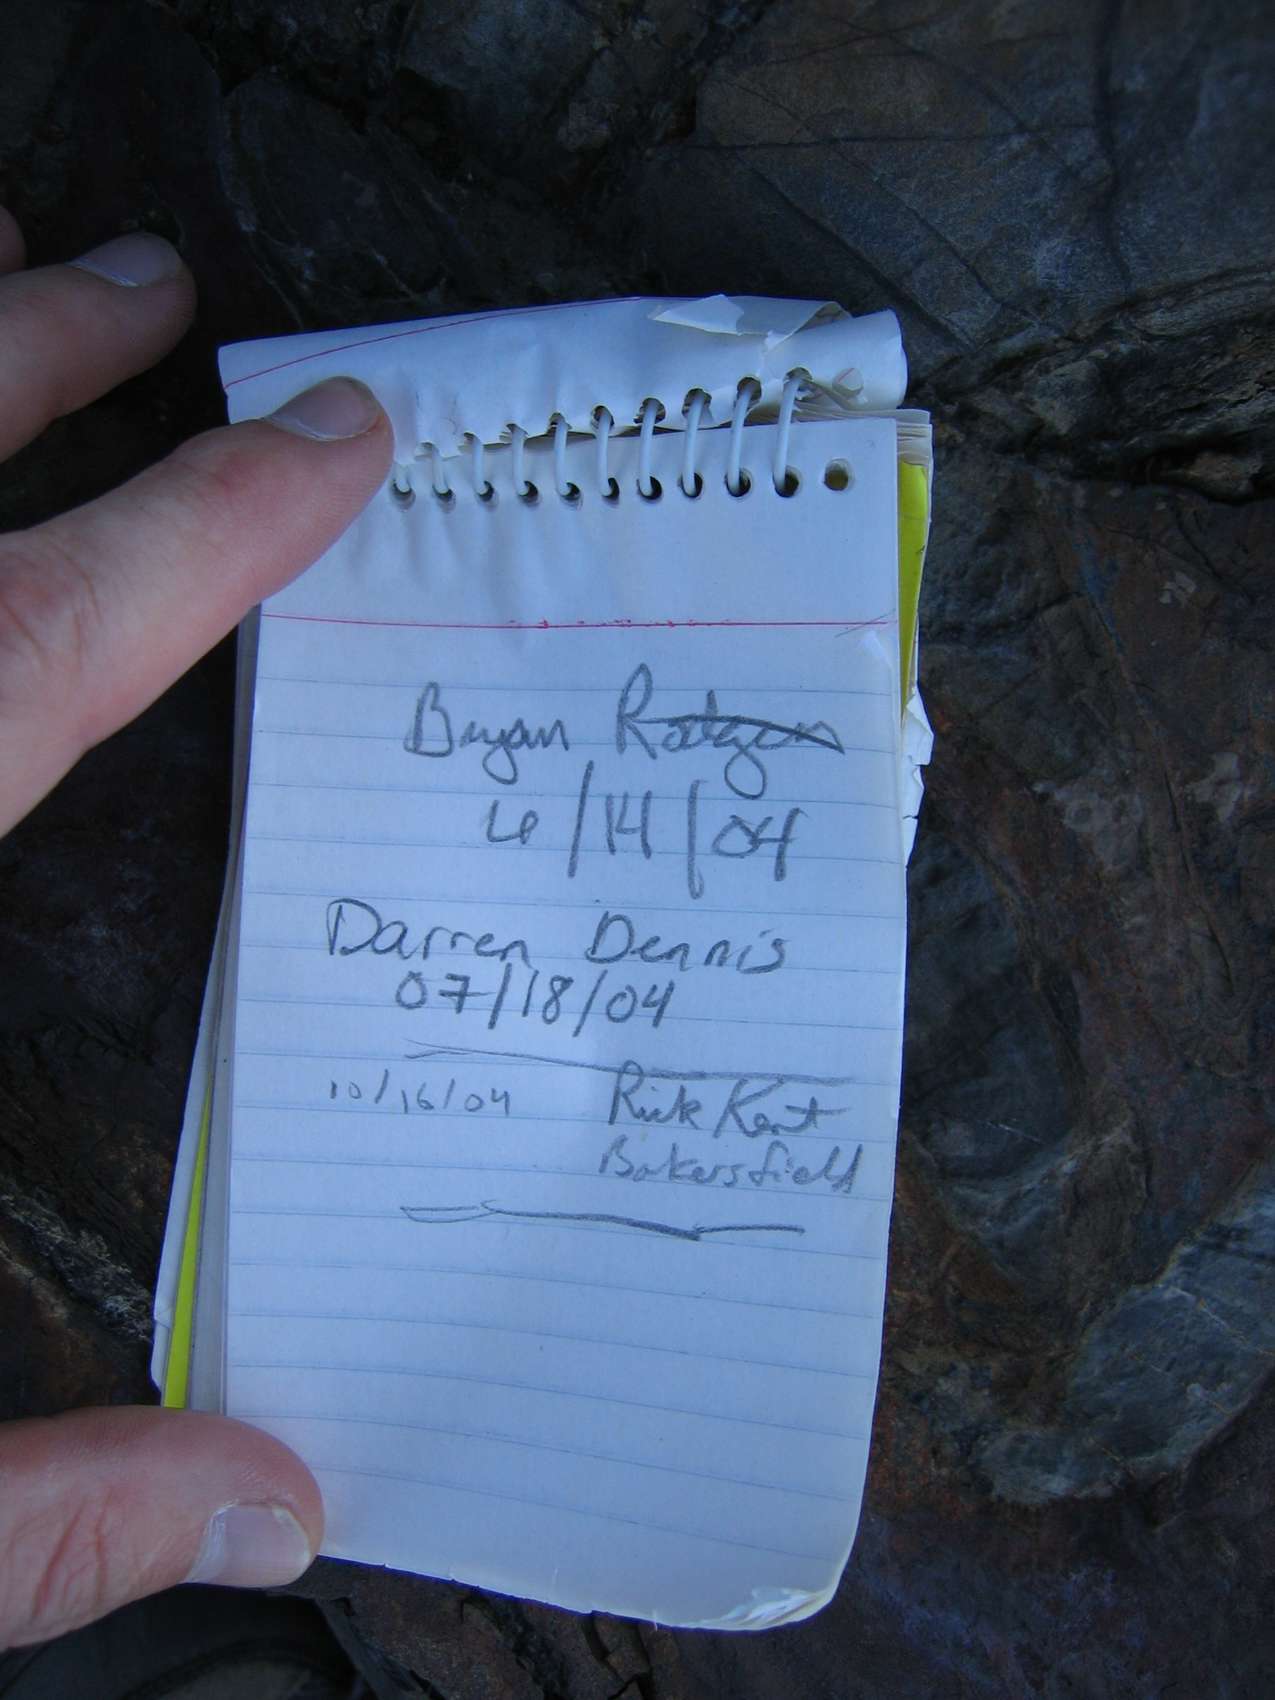 Bryan Rotgin
6/14/04
Darren Dennis
07/18/04
10/16/04 Rick Kent
Bakersfield